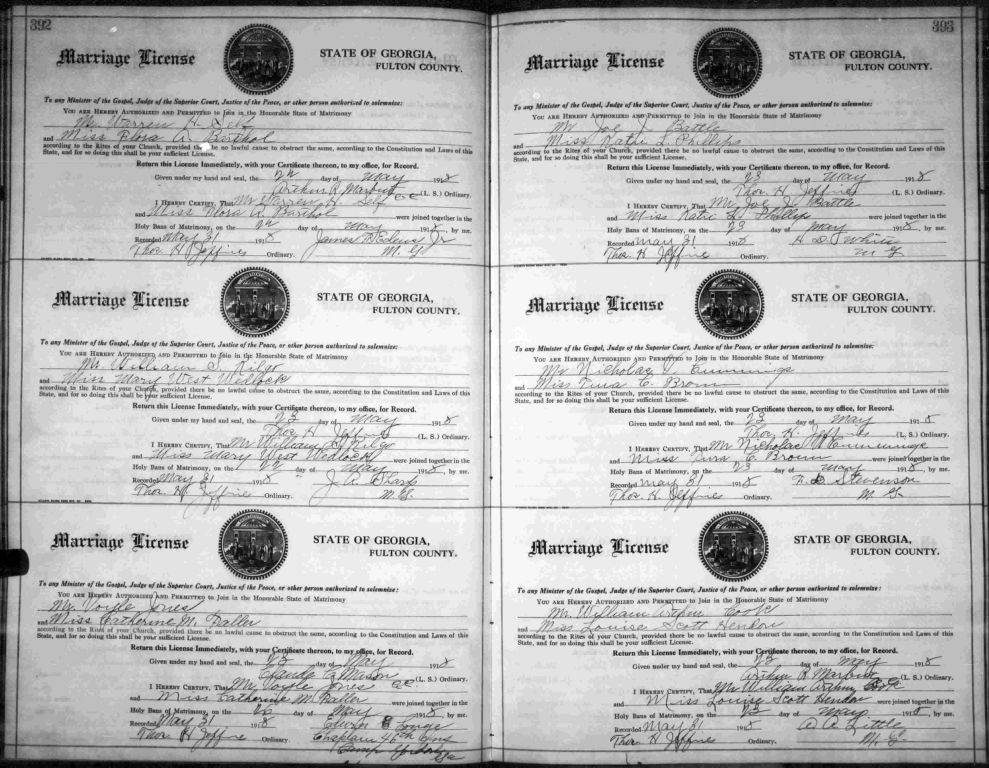 392
Marriage License
STATE OF GEORGIA,
FULTON COUNTY.
To any Minister of the Gospel, Judge of the Superior Court, Justice of the Peace, or other person authorized to solemnize:
YOU ARE HEREBY AUTHORIZED AND PERMITTED to Join in the Honorable State of Matrimony
Mr. Warren H. Self
and Miss Flora A. Barthol
according to the Rites of your Church, provided there be no lawful cause to obstruct the same, according to the Constitution and Laws of this
State, and for so doing this shall be your sufficient License.
Return this License Immediately, with your Certificate thereon, to my office, for Record.
Given under my hand and seal, the 22 day of May 1918
Arthur R. Marbut (L. S.) Ordinary.
I HEREBY CERTIFY, That Mr Warren H. Self
and Miss Flora A. Barthol were joined together in the
Holy Bans of Matrimony, on the 22 day of May 1918, by me.
Recorded May 31 1918 James Jr
Thos. H. Jeffries Ordinary. M. G.
Marriage License
STATE OF GEORGIA,
FULTON COUNTY.
To any Minister of the Gospel, Judge of the Superior Court, Justice of the Peace, or other person authorized to solemnize:
YOU ARE HEREBY AUTHORIZED AND PERMITTED to Join in the Honorable State of Matrimony
Mr. William S. Kilgo
and Miss Mary West Wedlock
according to the Rites of your Church, provided there be no lawful cause to obstruct the same, according to the Constitution and Laws of this
State, and for so doing this shall be your sufficient License.
Return this License Immediately, with your Certificate thereon, to my office, for Record.
Given under my hand and seal, the 23 day of May 1918
Thos. H. Jeffries (L. S.) Ordinary.
I HEREBY CERTIFY, That Mr William S. Kilgo
and Miss Mary West Wedlock were joined together in the
Holy Bans of Matrimony, on the 22 day of May 1918, by me.
Recorded May 31 1918 J. A. Sharp
Thos. H. Jeffries Ordinary. M. G.
Marriage License
STATE OF GEORGIA,
FULTON COUNTY.
To any Minister of the Gospel, Judge of the Superior Court, Justice of the Peace, or other person authorized to solemnize:
YOU ARE HEREBY AUTHORIZED AND PERMITTED to Join in the Honorable State of Matrimony
Mr. Voyle Jones
and Miss Catherine M. Baller
according to the Rites of your Church, provided there be no lawful cause to obstruct the same, according to the Constitution and Laws of this
State, and for so doing this shall be your sufficient License.
Return this License Immediately, with your Certificate thereon, to my office, for Record.
Given under my hand and seal, the 23 day of May 1918
Claude C. Mason (L. S.) Ordinary.
I HEREBY CERTIFY, That Mr Voyle Jones
and Miss Catherine M. Baller were joined together in the
Holy Bans of Matrimony, on the day of May 1918, by me.
Recorded May 31 1918
Thos H Jeffries Ordinary. Chaplain 46th
Camp Ga
393
Marriage License
STATE OF GEORGIA,
FULTON COUNTY.
To any Minister of the Gospel, Judge of the Superior Court, Justice of the Peace, or other person authorized to solemnize:
YOU ARE HEREBY AUTHORIZED AND PERMITTED to Join in the Honorable State of Matrimony
Mr. Joe J. Battle
and Miss Katie L. Phillips
according to the Rites of your Church, provided there be no lawful cause to obstruct the same, according to the Constitution and Laws of this
State, and for so doing this shall be your sufficient License.
Return this License Immediately, with your Certificate thereon, to my office, for Record.
Given under my hand and seal, the 23 day of May 1918
Thos. H. Jeffries (L. S.) Ordinary.
I HEREBY CERTIFY, That Mr Joe J. Battle
and Miss Katie L. Phillips were joined together in the
Holy Bans of Matrimony, on the 23 day of May 1918, by me.
Recorded May 31 1918 H. D. White
Thos. H. Jeffries Ordinary. M G
Marriage License
STATE OF GEORGIA,
FULTON COUNTY.
To any Minister of the Gospel, Judge of the Superior Court, Justice of the Peace, or other person authorized to solemnize:
YOU ARE HEREBY AUTHORIZED AND PERMITTED to Join in the Honorable State of Matrimony
Mr Nicholas Cummings
and Miss C. Brown
according to the Rites of your Church, provided there be no lawful cause to obstruct the same, according to the Constitution and Laws of this
State, and for so doing this shall be your sufficient License.
Return this License Immediately, with your Certificate thereon, to my office, for Record.
Given under my hand and seal, the 23 day of May 1918
Thos. H. Jeffries (L. S.) Ordinary.
I HEREBY CERTIFY, That Mr Nicholas Cummings
and Miss C. Brown were joined together in the
Holy Bans of Matrimony, on the 23 day of May 1918, by me.
Recorded May 31 1918 D. Stevenson
Thos. H. Jeffries Ordinary. M. G.
Marriage License
STATE OF GEORGIA,
FULTON COUNTY.
To any Minister of the Gospel, Judge of the Superior Court, Justice of the Peace, or other person authorized to solemnize:
YOU ARE HEREBY AUTHORIZED AND PERMITTED to Join in the Honorable State of Matrimony
Mr. William Arthur Cook
and Miss Louise Scott Hendon
according to the Rites of your Church, provided there be no lawful cause to obstruct the same, according to the Constitution and Laws of this
State, and for so doing this shall be your sufficient License.
Return this License Immediately, with your Certificate thereon, to my office, for Record.
Given under my hand and seal, the 23 day of May 1918
Arthur R. Marbut (L. S.) Ordinary.
I HEREBY CERTIFY, That Mr William Arthur Cook
and Miss Louise Scott Hendon were joined together in the
Holy Bans of Matrimony, on the 23 day of May 1918, by me.
Recorded May 31 1918 A. C. Little
Thos. H. Jeffries Ordinary. M. G.